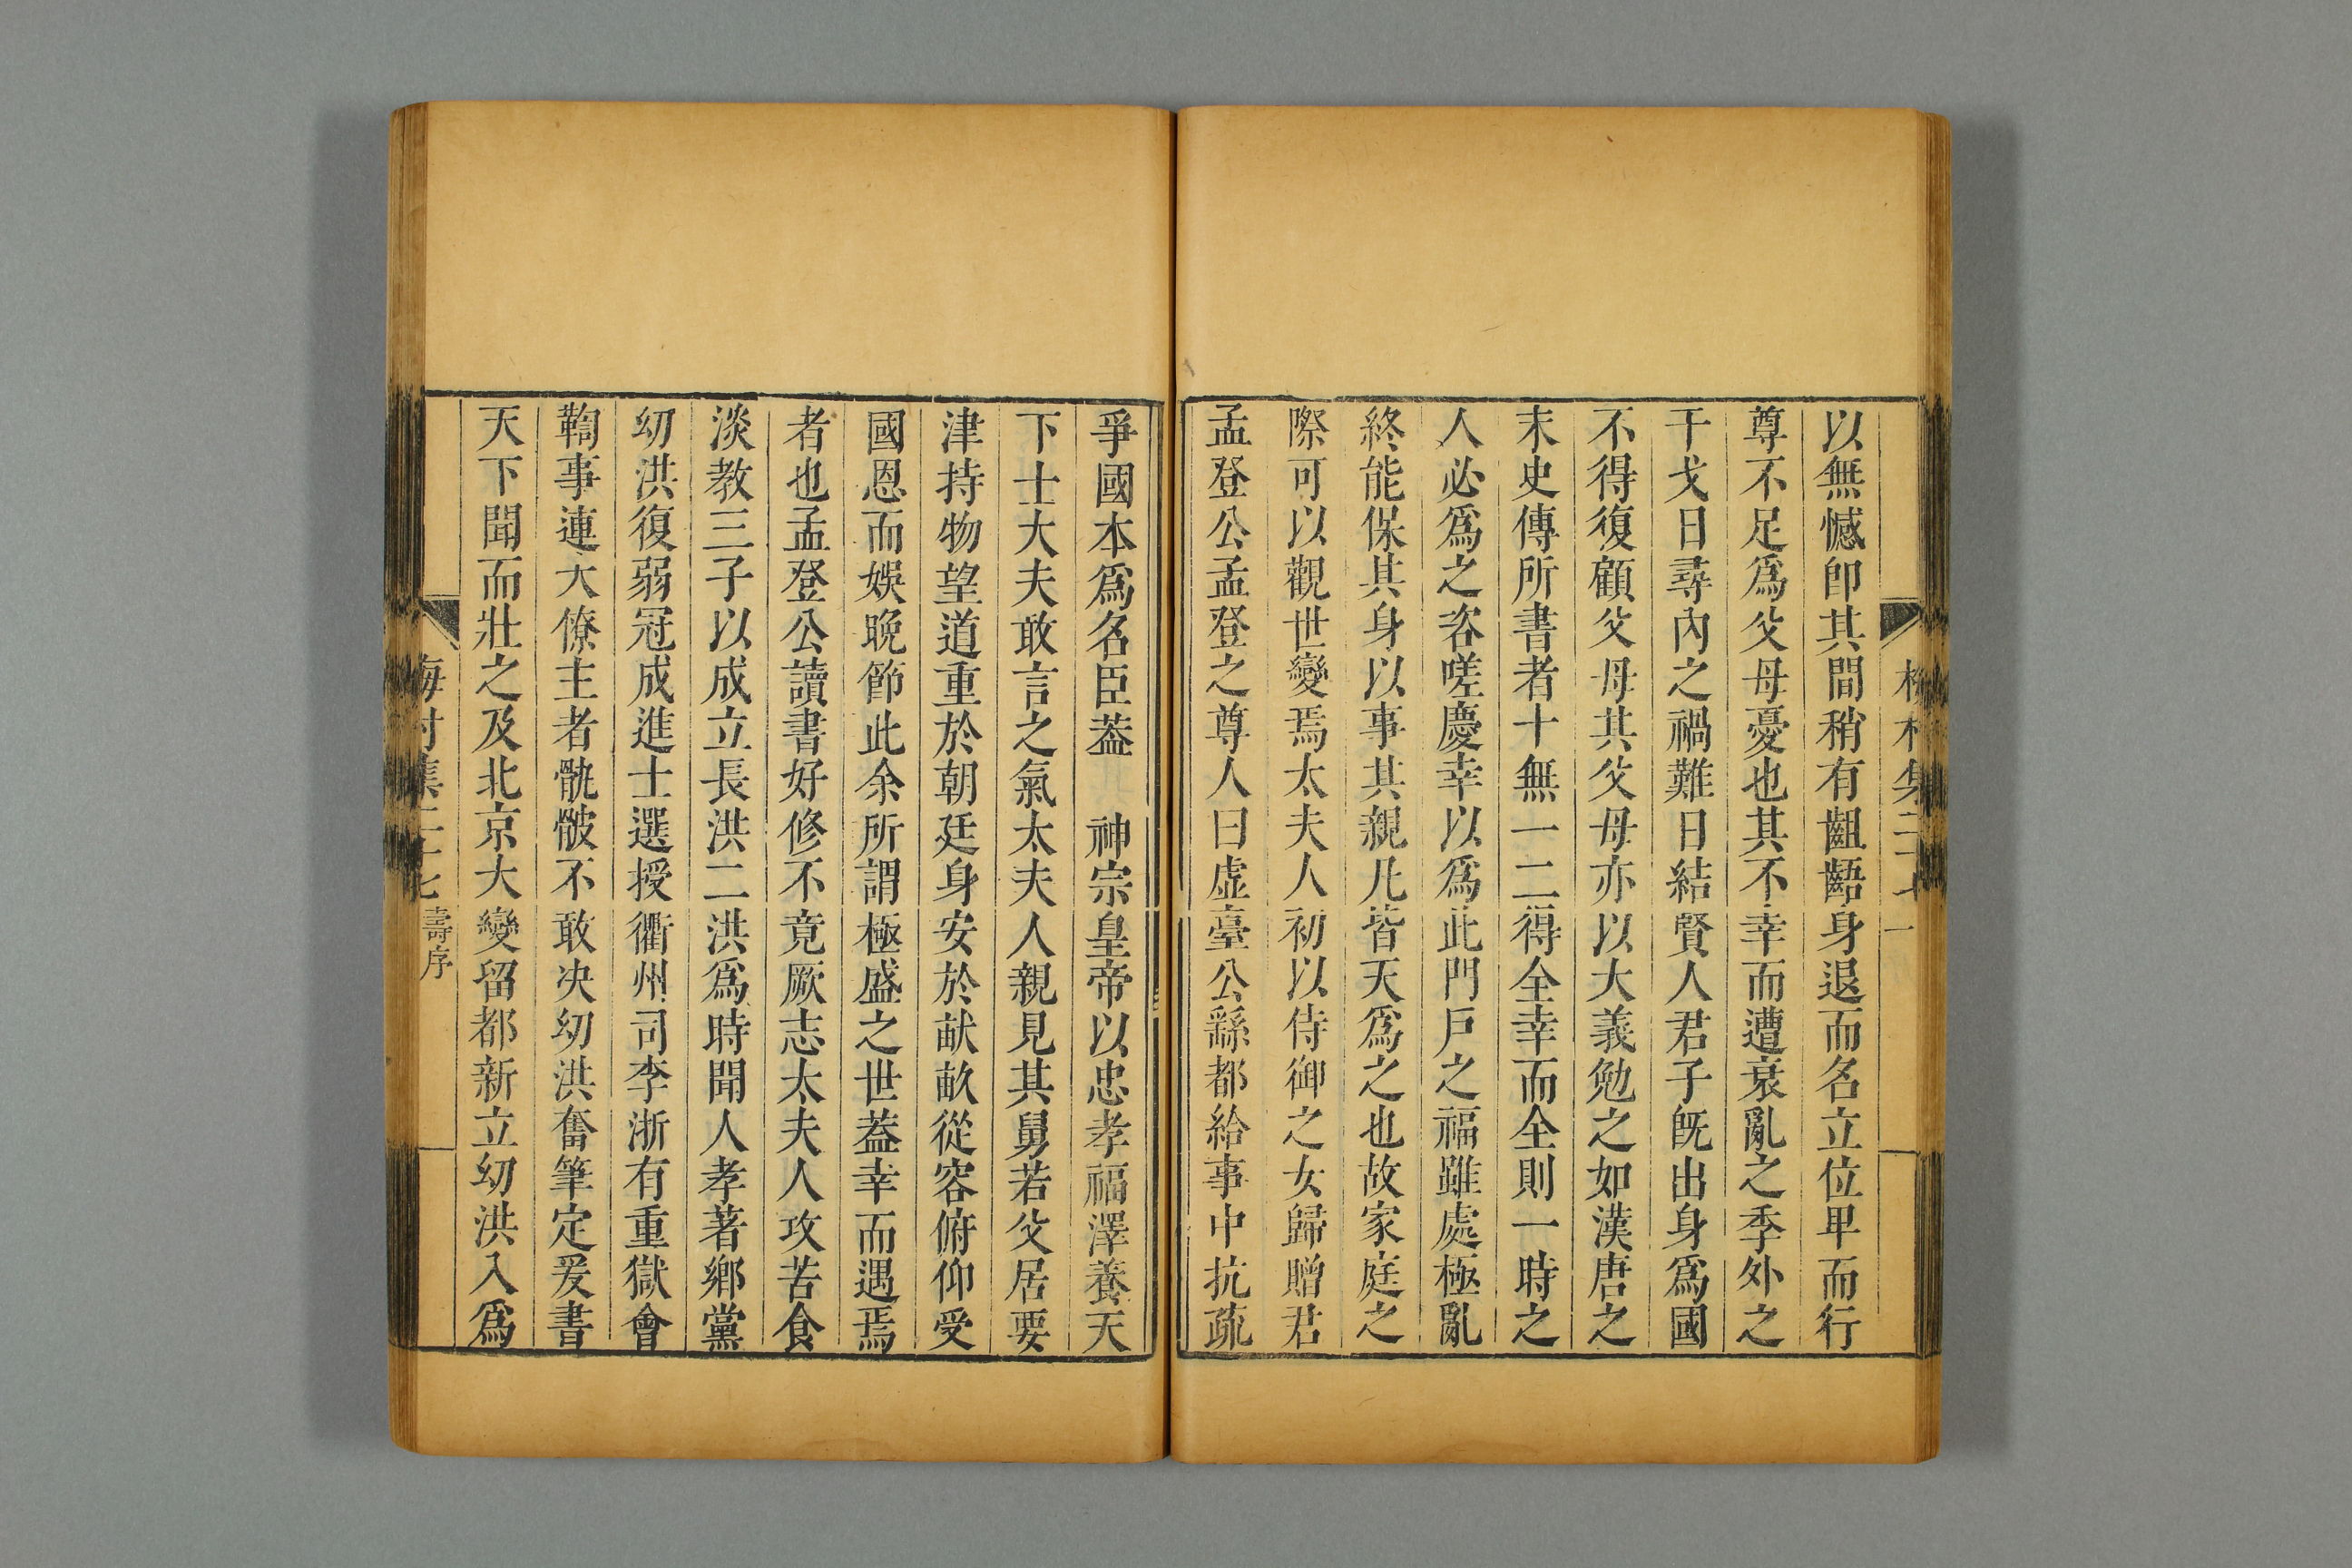 以無憾卽其間稍有齟齬身退而名立位𤰞而行
尊不足爲父母憂也其不幸而遭衰亂之季外之
干戈日尋內之禍難日結賢人君子旣出身爲國
不得復顧父母其父母亦以大義勉之如漢唐之
末史傳所書者十無一二得全幸而全則一時之
人必爲之咨嗟慶幸以爲此門戶之福雖處極亂
終能保其身以事其親凡皆天爲之也故家庭之
際可以觀世變焉太夫人初以侍御之女歸贈君
孟登公孟登之尊人曰虛臺公繇都給事中抗疏
爭國本爲名臣葢　神宗皇帝以忠孝福澤養天
下士大夫敢言之氣太夫人親見其舅若父居要
津持物望道重於朝廷身安於畎畝從容俯仰受
國恩而娛晚節此余所謂極盛之世葢幸而遇焉
者也孟登公讀書好修不竟厥志太夫人攻苦食
淡教三子以成立長洪二洪爲時聞人孝著鄉黨
幼洪復弱冠成進士選授衢州司李浙有重獄會
鞫事連大僚主者骫骳不敢决幼洪奮筆定爰書
天下聞而壯之及北京大變留都新立幼洪入爲
梅村集二十七
壽序